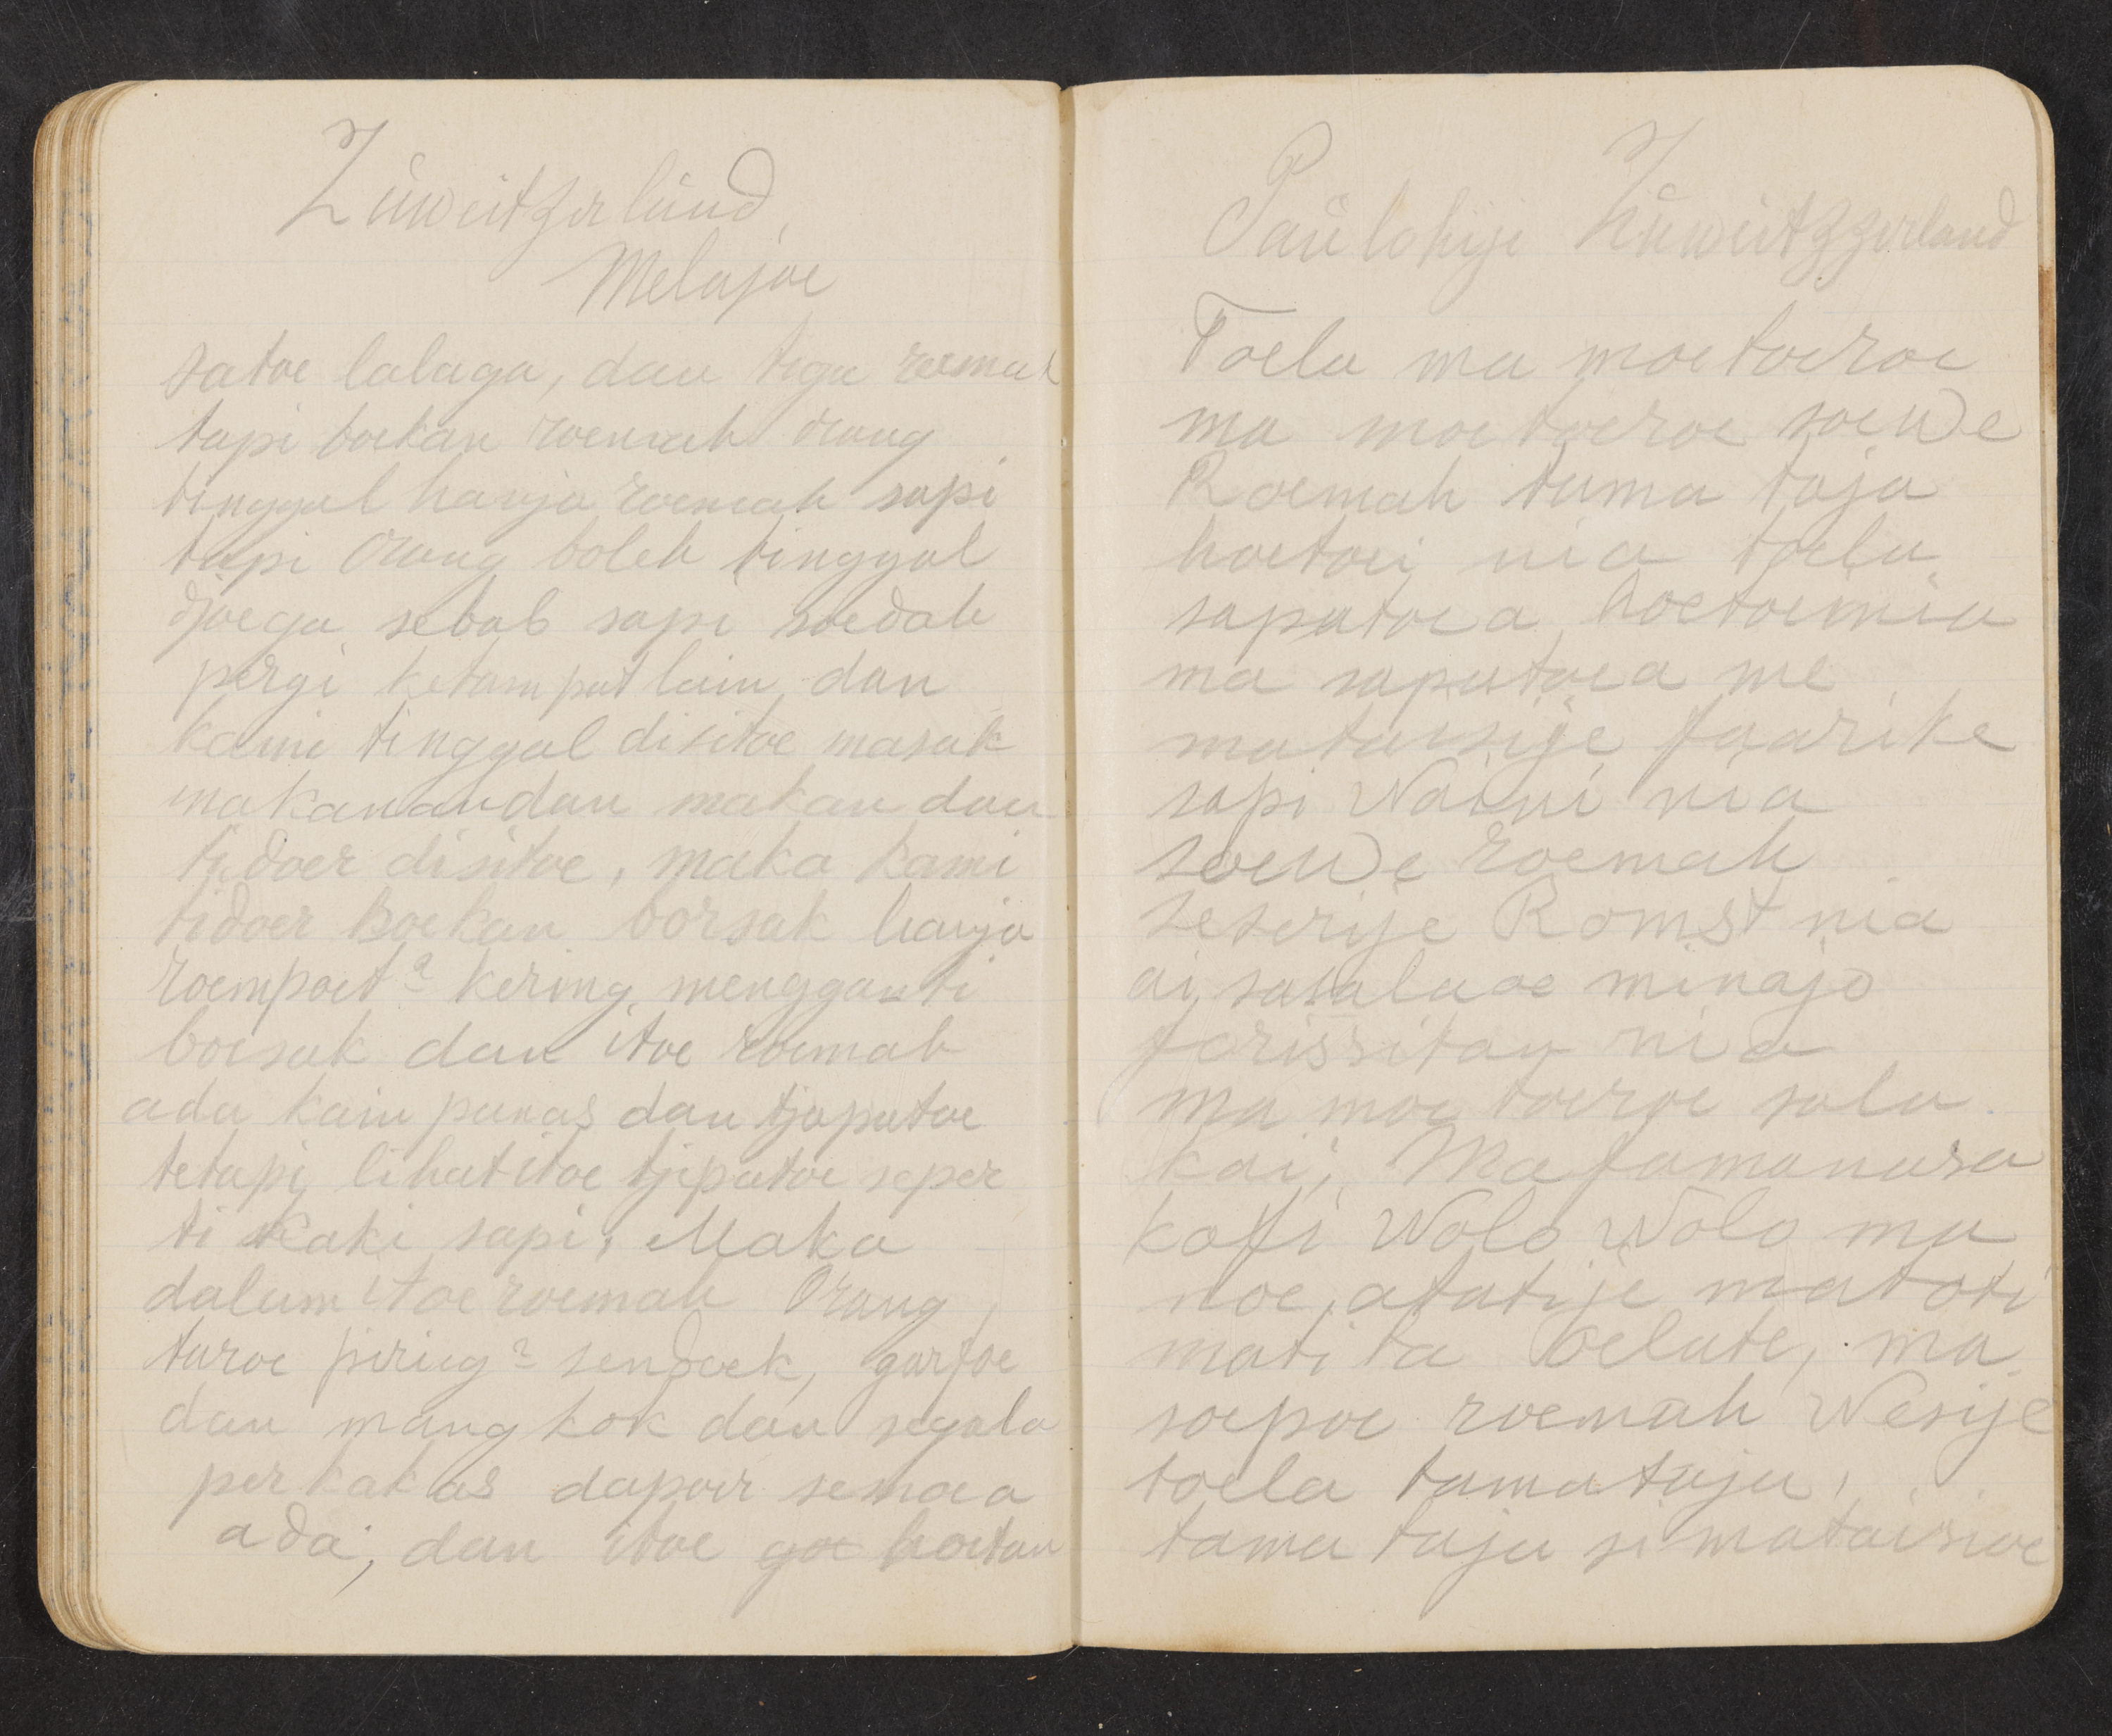 Züweitzerlünd,
Melajoe
satoe lalaga, dan tiga roemah
tapi boekan roemah orang
tinggal hanja roemah sapi
tapi orang boleh tinggal
djoega sebab sapi soedah
pergi ketampat lain, dan
kami tinggal disitoe masak
makanan dan makan dan
tidoer disitoe, maka kami
tidoer boekan borsak hanja
roempoet2 kering mengganti
boesak dan itoe roemah
ada kain panas dan tjapatoe
tetapi lihat itoe tjipatoe seper
ti kaki sapi, Maka
dalam itoe roemah Orang
taroe piring2 sendoek, garfoe
dan mangkok dan segala
perkakas dapoer semoea
ada, dan itoe goe hoetan
Paülohije Züweitzzerland
Toela ma moetoeroe
ma moetoeroe soewe
Roemah tuma taja
hoetoei nia toela
sapatoea hoetoeinia
ma sapatoea me
mataisije faarike
sapi Waini nia
soewe roemah
seserije Romst nia
ai, satalaoe minajo
forissitan nia
ma moe toeroe sala
kai, Ma famanasa
koffi Wolo Wolo ma
noe, afatije matoti
mati ta Oelate, ma
soepoe roemah Wesije
toela tamataja,
tama taja si mataisioe